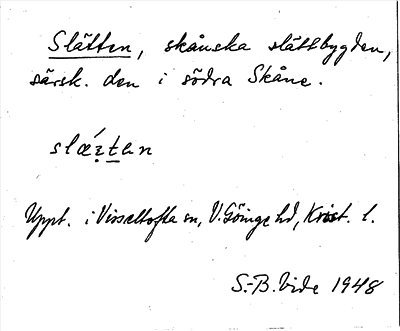 Slätten, skånska slättbygden,
särsk. den i södra Skåne.
slǽtan
Uppt. i Visseltofta sn, V. Göinge hd, Krist. l.
S.-B. Vide 1948